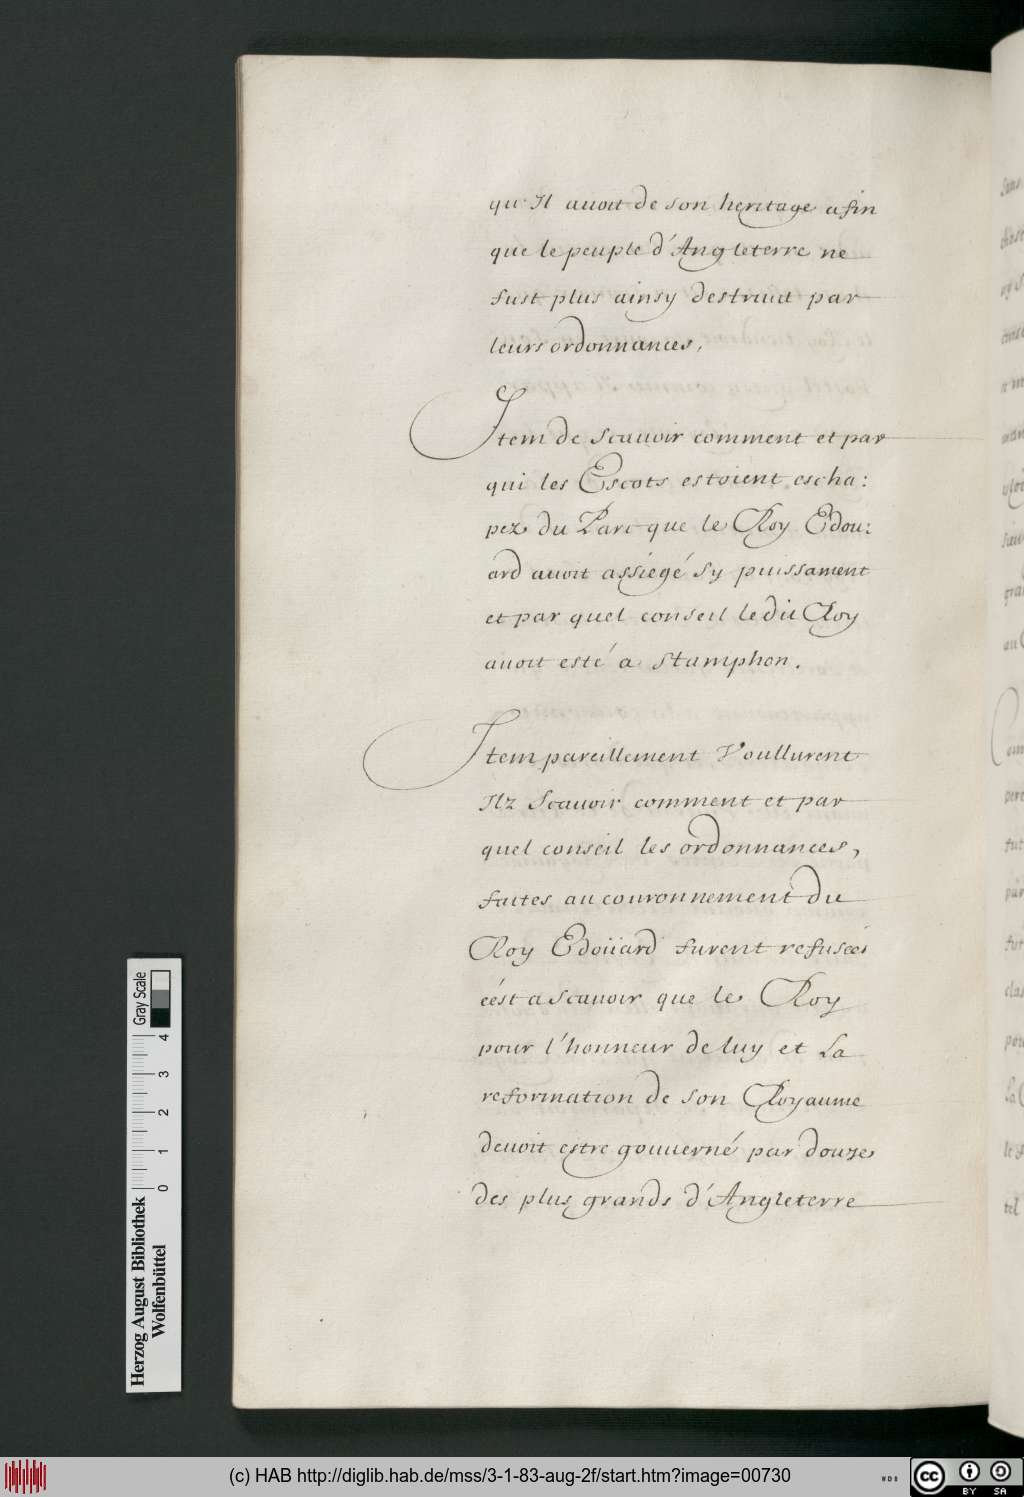 qu'Il auoit de son heritage afin
que le peuple d'Angleterre ne
fust plus ainsy destruict par
leurs ordonnances.
Item de scauoir comment et par
qui les Escots estoient escha:
pez du Parc que le Roy Edou:
ard auoit assiegé sy puissament
et par quel conseil le dit Roy
auoit esté a Stamphon.
Item pareillement Voullurent
Ilz Scauoir comment et par
quel conseil les ordonnances,
faites au couronnement du
Roy Edoüard furent refusées
cést a scauoir que le Roy
pour l'honneur de luy et La
reformation de son Royaume
deuoit estre gouuerné par douze
des plus grands d'Angleterre
Herzog August Bibliothek
Wolfenbüttel
0 1 2 3 4
Gray Scale
(c) HAB http://diglib.hab.de/mss/3-1-83-aug-2f/start.htm?image=00730
WDB
cc
BY SA